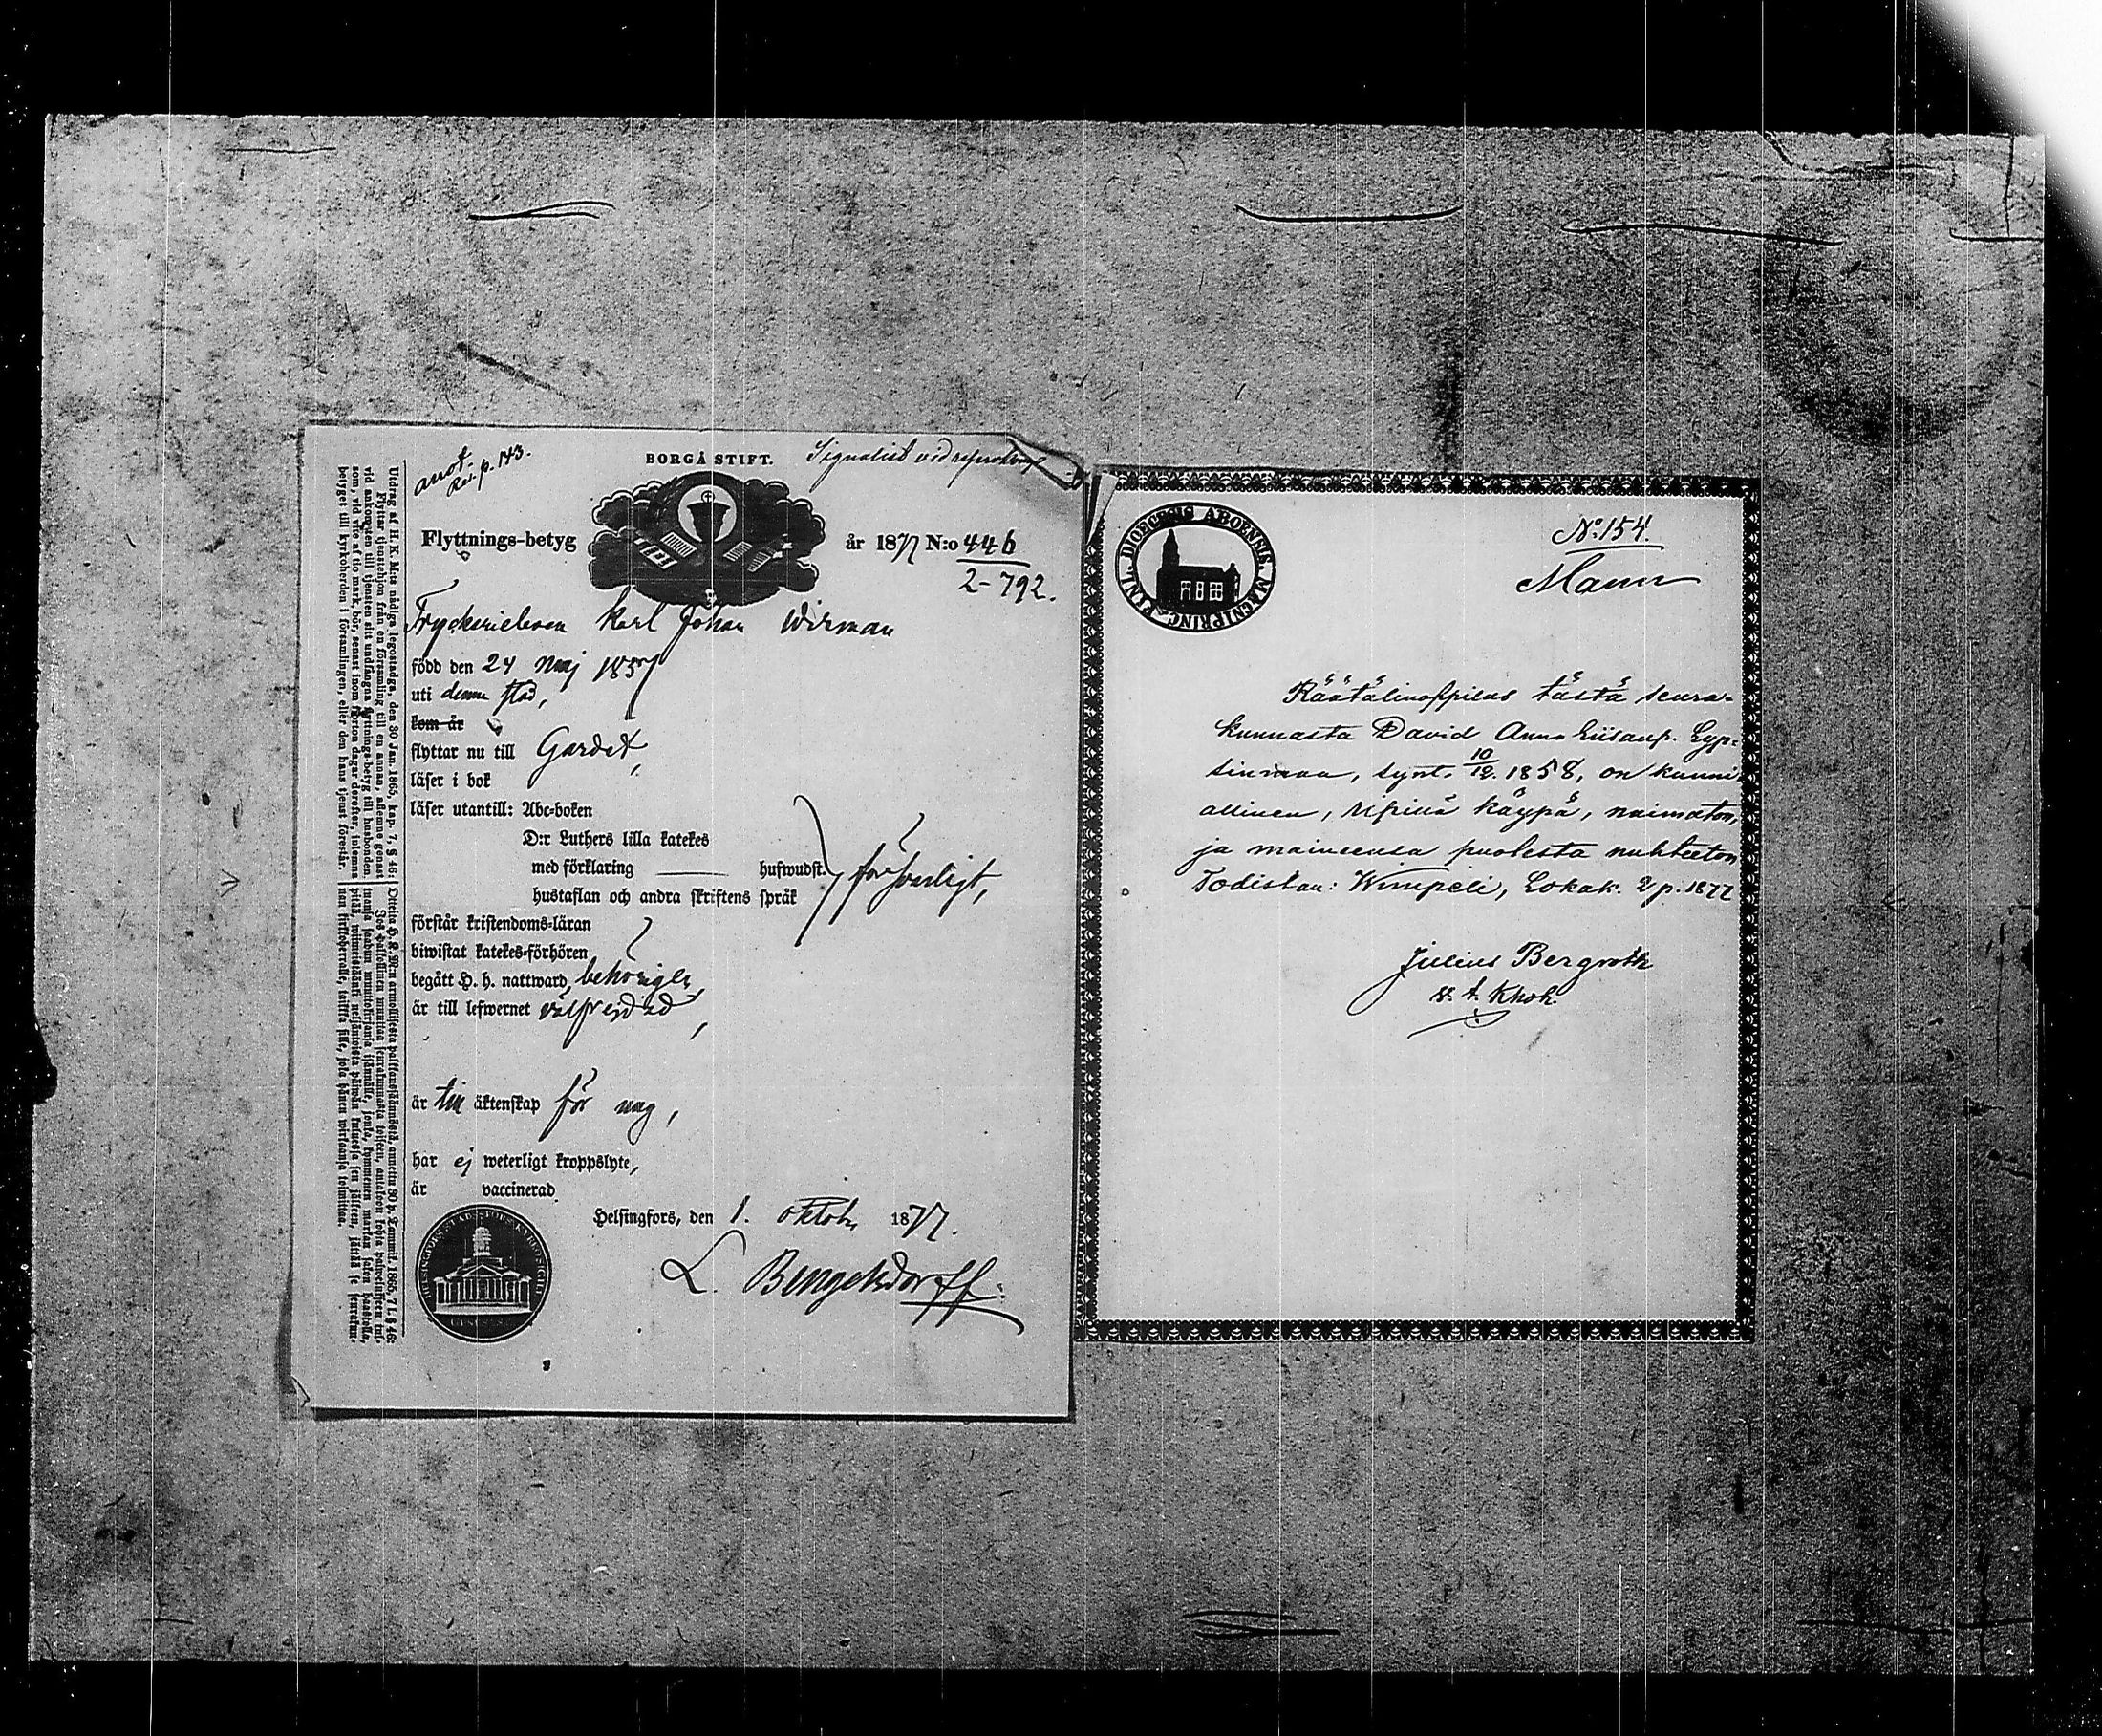 anot.
Rec. p. 143.
BORGÅ STIFT.
Signalist vid
Flyttnings-betyg
år 1877 N:o 446
2-792.
Karl Johan Wirman
född den 24 maj 1857
uti denna stad,
kom år
flyttar nu till Gardet,
läser i bok
läser utantill: Abc-boken
D:r Luthers lilla katekes
med förklaring hufwudst.
försvarligt,
hustaflan och andra skriftens språk
förstår kristendoms-läran
biwistat katekes-förhören
begått H. h. nattward, behörigen,
är till lefwernet välfrejdad,
är till äktenskap för ung,
har ej weterligt kroppslyte,
är vaccinerad
Helsingfors, den 1. oktob. 1877.
L. Bengelsdorff.
Utdrag af H. K. M:ts nådiga legostadga, den 30 Jan. 1865, kap. 7, § 46:
Flyttar tjenstehjon från en församling till en annan, aflemne genast
vid ankomsten till tjensten sitt undfångna flyttnings-betyg till husbonden,
som, vid vite af tio mark, bör, senast inom fjorton dagar derefter, inlemna
betyget till kyrkoherden i församlingen, eller den hans tjenst förestår.
Otteita H. K. M:n armollisesta palkkaussäännöstä, annettu 30 p. Tammik. 1865, 7 l. § 46:
DIOECESIS ABOENSIS. MAGNI PRINC. FINL.
No. 154.
Räätälinoppilas tästä seura-
kunnasta David Anna Liisanp. Lyp-
sinmaa, synt. 10/12. 1858, on kunni-
allinen, ripillä käypä, naimaton,
ja maineensa puolesta nuhteeton
Todistan: Wimpeli, Lokak. 2 p. 1877
Julius Bergroth
v. t. Khoh.